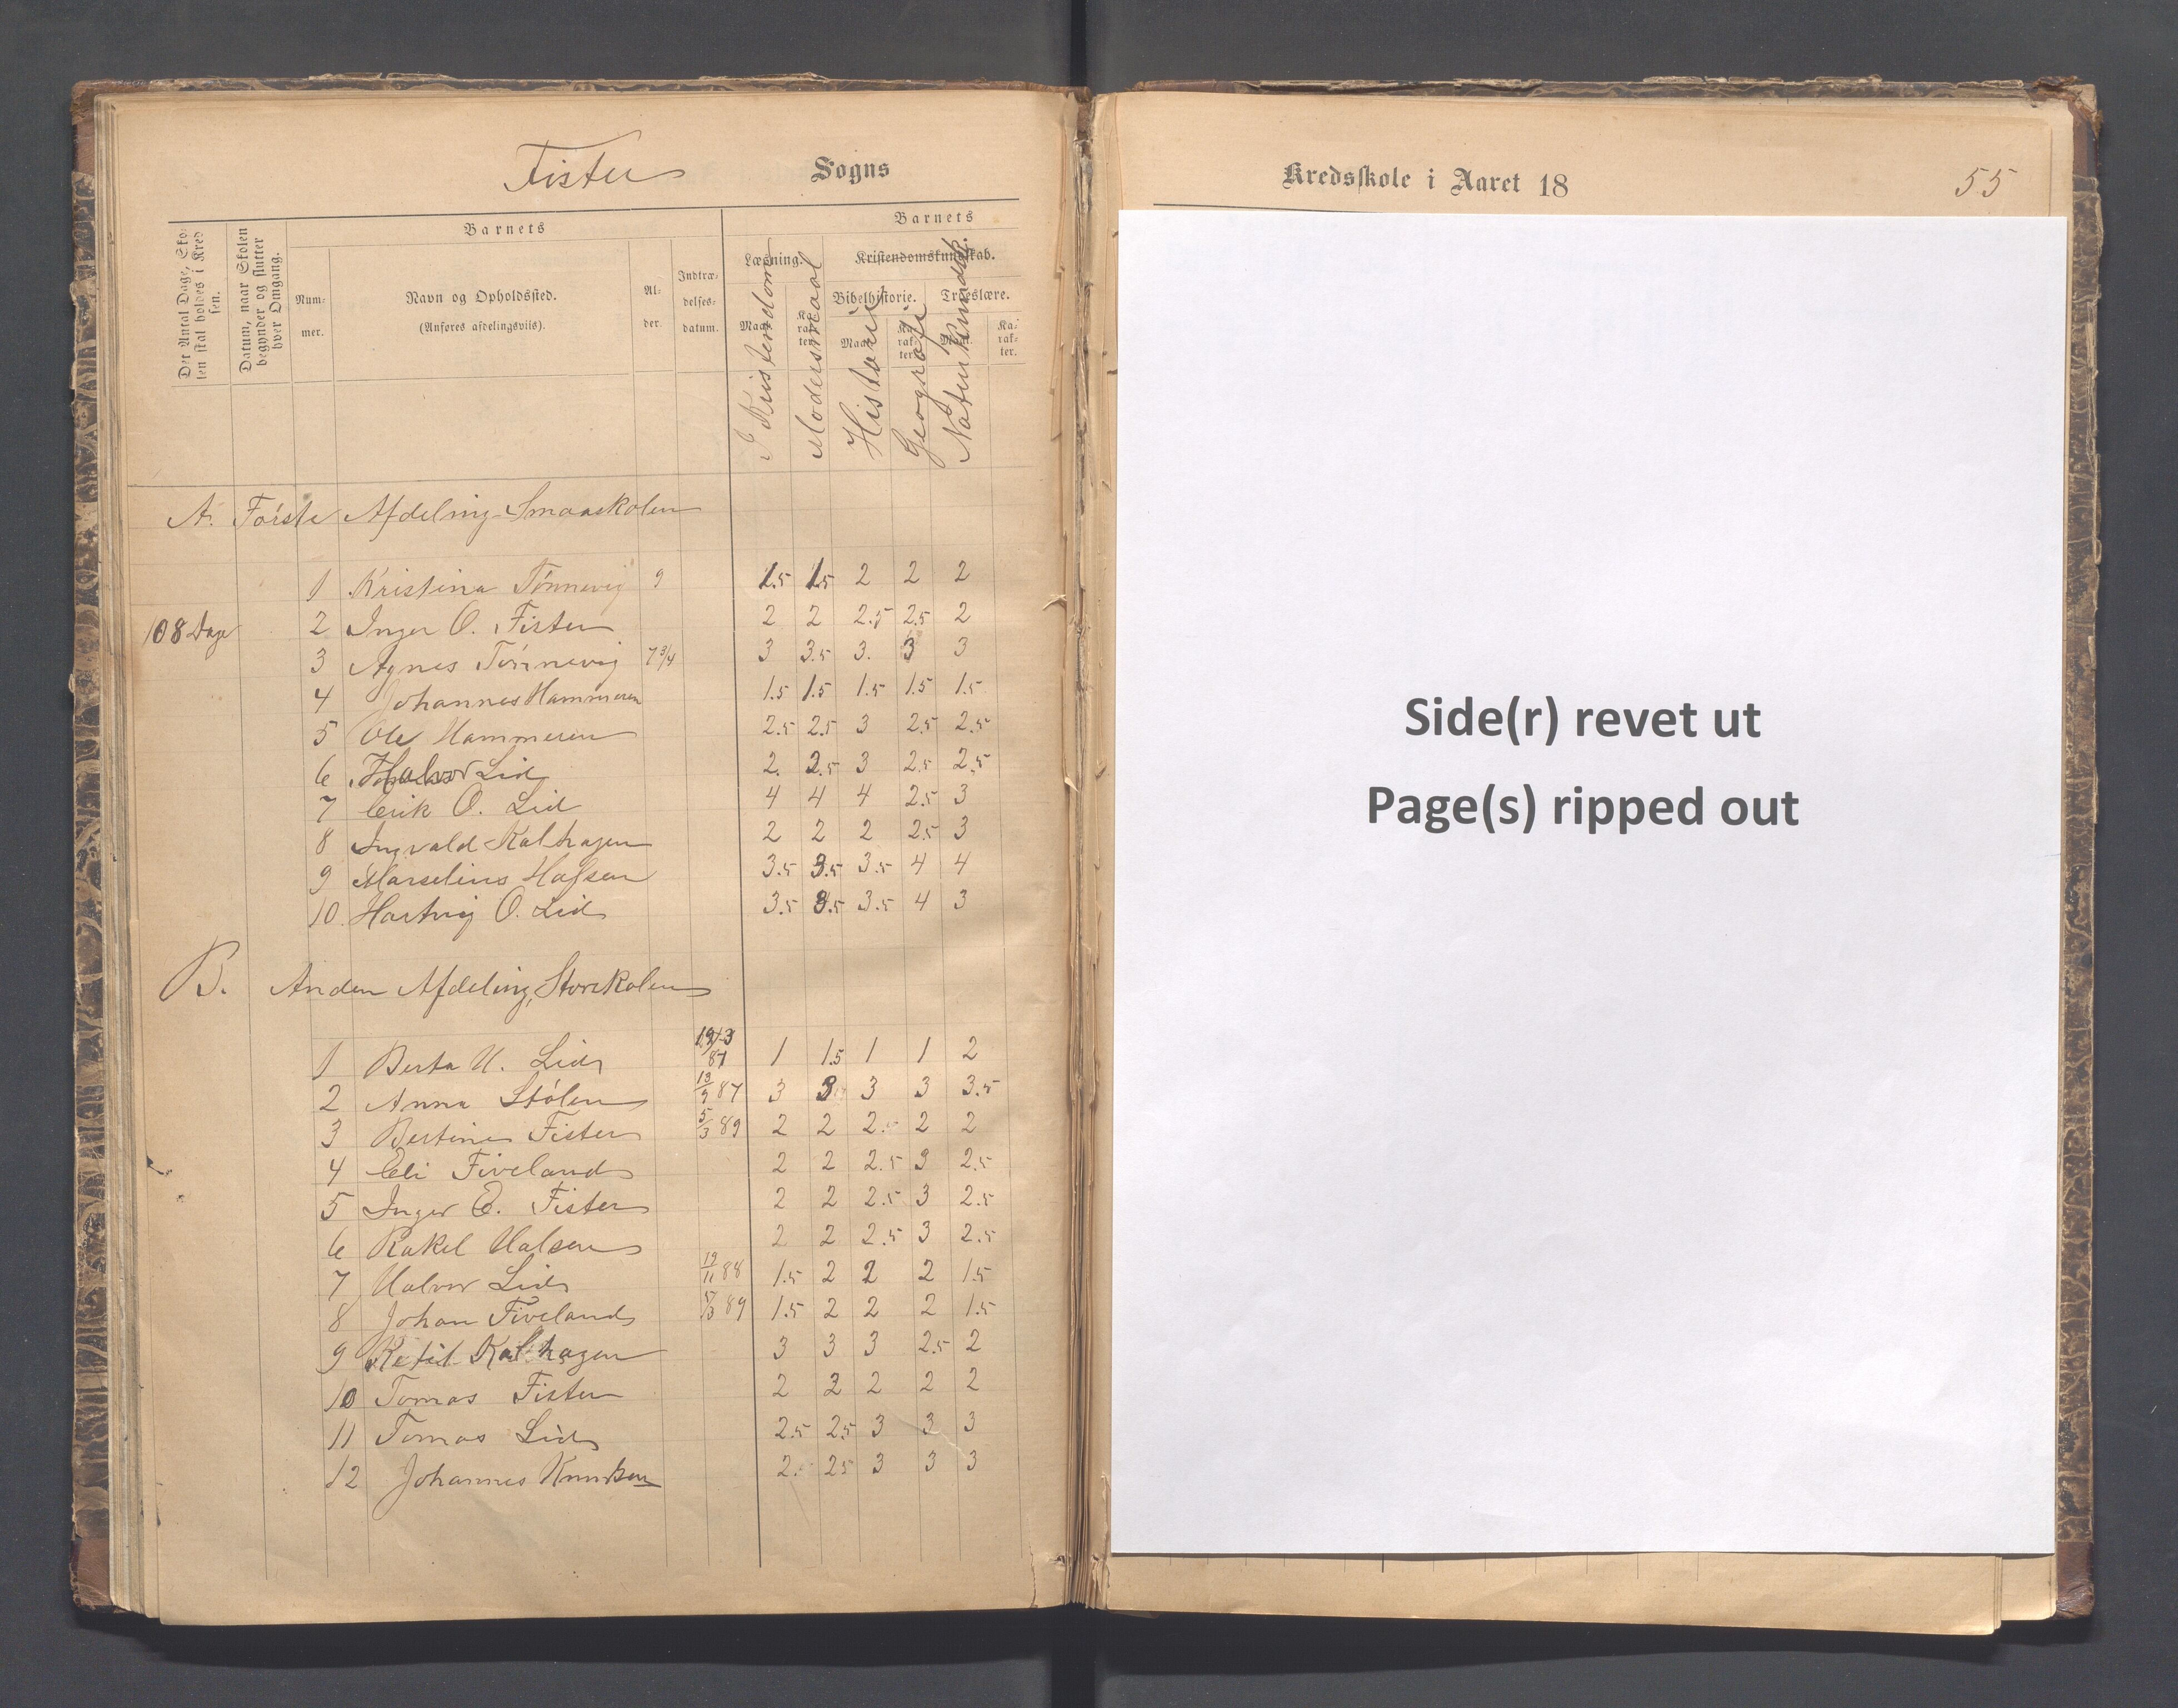 Fister Sogns
Det Antal Dage, Skolen skal holdes i Kredsen.
Datum, naar Skolen begynder og slutter hver Omgang.
Barnets
Nummer.
Navn og Opholdssted.
(Anføres afdelingsviis).
Alder.
Indtrædelsesdatum.
Barnets
Læsning.
Kristendomskundskab.
Bibelhistorie.
Troeslære.
Maal. Karakter. Maal. Karakter. Maal. Karakter.
Kristendom
Modersmaal
Historie
Geografi
Naturkundsk.
A. Første Afdeling Smaaskolen
1 Kristina Tønnevig 9 1.5 1.5 2 2 2
108 Dage 2 Inger O. Fister 2 2 2.5 2.5 2
3 Agnes Tønnevig 7 3/4 3 3.5 3. 3 3
4 Johannes Hammeren 1.5 1.5 1.5 1.5 1.5
5 Ole Hammeren 2.5 2.5 3 2.5 2.5
6 Halvor Lid 2. 2.5 3 2.5 2.5
7 Erik O. Lid 4 4 4 2.5 3
8 Ingvald Kalhagen 2 2 2 2.5 3
9 Marselius Halsen 3.5 3.5 3.5 4 4
10. Hartvig O. Lid 3.5 3.5 3.5 4 3
B. Anden Afdeling, Storskolen
1 Berta H. Lid 87 1 1.5 1 1 2
2 Anna Stølen 13/9 87 3 3 3 3 3.5
3 Bertine Fister 5/3 89 2 2 2. 2 2
4 Eli Fiveland 2 2 2.5 3 2.5
5 Inger E. Fister 2 2 2.5 3 2.5
6 Rakel Halsen 2 2 2.5 3 2.5
7 Halvor Lid 19/11 88 1.5 2 2 2 1.5
8 Johan Fiveland 5/3 89 1.5 2 2 2 1.5
9 Ketil Kalhagen 3 3 3 2.5 2
10 Tomas Fister 2 2 2 2 2
11 Tomas Lid 2.5 2.5 3 3 3
12 Johannes Knudsen 2. 25 3 3 3
Kredsskole i Aaret 18
55
Side(r) revet ut
Page(s) ripped out